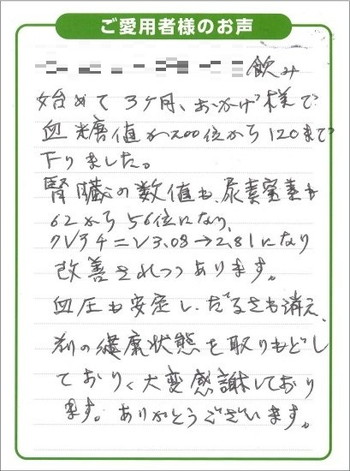 ご愛用者様のお声
飲み
始めて3ケ月、おかげ様で
血糖値が200位から120まで
下りました。
腎臓の数値も、尿素窒素も
62から56位になり、
クレアチニン3.08→2.81になり
改善されつつあります。
血圧も安定し、だるさも消え、
前の健康状態を取りもどし
ており、大変感謝しており
ます。ありがとうございます。